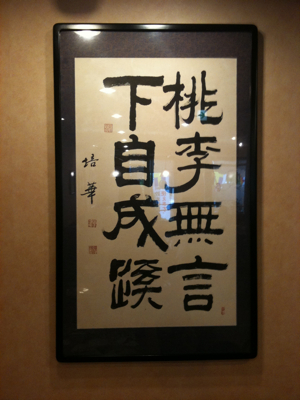 桃李無言
下自成蹊
培華